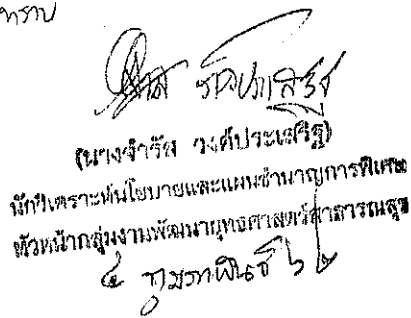 ทราบ
(นางจำรัส วงศ์ประเสริฐ)
นักวิเคราะห์นโยบายและแผนชำนาญการพิเศษ
หัวหน้ากลุ่มงานพัฒนายุทธศาสตร์สาธารณสุข
๕ กุมภาพันธ์ ๖๒